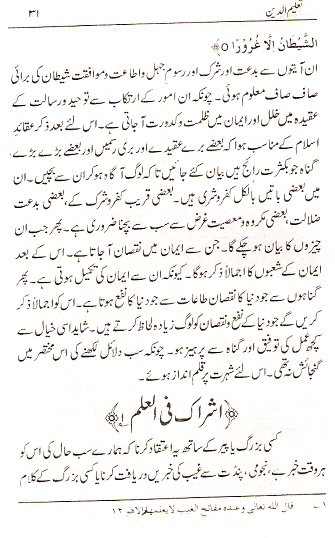 تعلیم الدین
۳۱
الشَّيْطَانُ اِلَّا غُرُوْرًا ۝﴾
ان آیتوں سے بدعت اور شرک اور رسوم جہل و اطاعت و موافقت شیطان کی برائی
صاف صاف معلوم ہوئی۔ چونکہ ان امور کے ارتکاب سے توحید و رسالت کے
عقیدہ میں خلل اور ایمان میں ظلمت و کدورت آ جاتی ہے۔ اس لئے بعد ذکر عقائد
اسلام کے مناسب ہوا کہ بعضے برے عقیدے اور بری رسمیں اور بعضے بڑے بڑے
گناہ جو بکثرت رائج ہیں بیان کئے جائیں تاکہ لوگ آگاہ ہو کر ان سے بچیں۔ ان
میں بعضی باتیں بالکل کفر و شرک ہیں۔ بعضی قریب کفر و شرک کے، بعضی بدعت
ضلالت، بعضی مکروہ و معصیت غرض سب سے بچنا ضروری ہے۔ پھر جب ان
چیزوں کا بیان ہو چکے گا۔ جن سے ایمان میں نقصان آ جاتا ہے۔ اس کے بعد
ایمان کے شعبوں کا اجمالاً ذکر ہو گا۔ کیونکہ ان سے ایمان کی تکمیل ہوتی ہے۔ پھر
گناہوں سے جو دنیا کا نقصان طاعات سے جو دنیا کا نفع ہوتا ہے۔ اس کو اجمالاً ذکر
کریں گے جو دنیا کے نفع و نقصان کو لوگ زیادہ لحاظ کرتے ہیں۔ شاید اسی خیال سے
کچھ عمل کی توفیق اور گناہ سے پرہیز ہو۔ چونکہ سب دلائل لکھنے کی اس مختصر میں
گنجائش نہ تھی۔ اس لئے شہرت پر قلم انداز ہوئے۔
﴿اشراک فی العلم﴾ ۱
کسی بزرگ یا پیر کے ساتھ یہ اعتقاد کرنا کہ ہمارے سب حال کی اس کو
ہر وقت خبر ہے، نجومی، پنڈت سے غیب کی خبریں دریافت کرنا یا کسی بزرگ کے کلام
۱ قال الله تعالى وعنده مفاتح الغيب لا يعلمها الا هو ۱۲